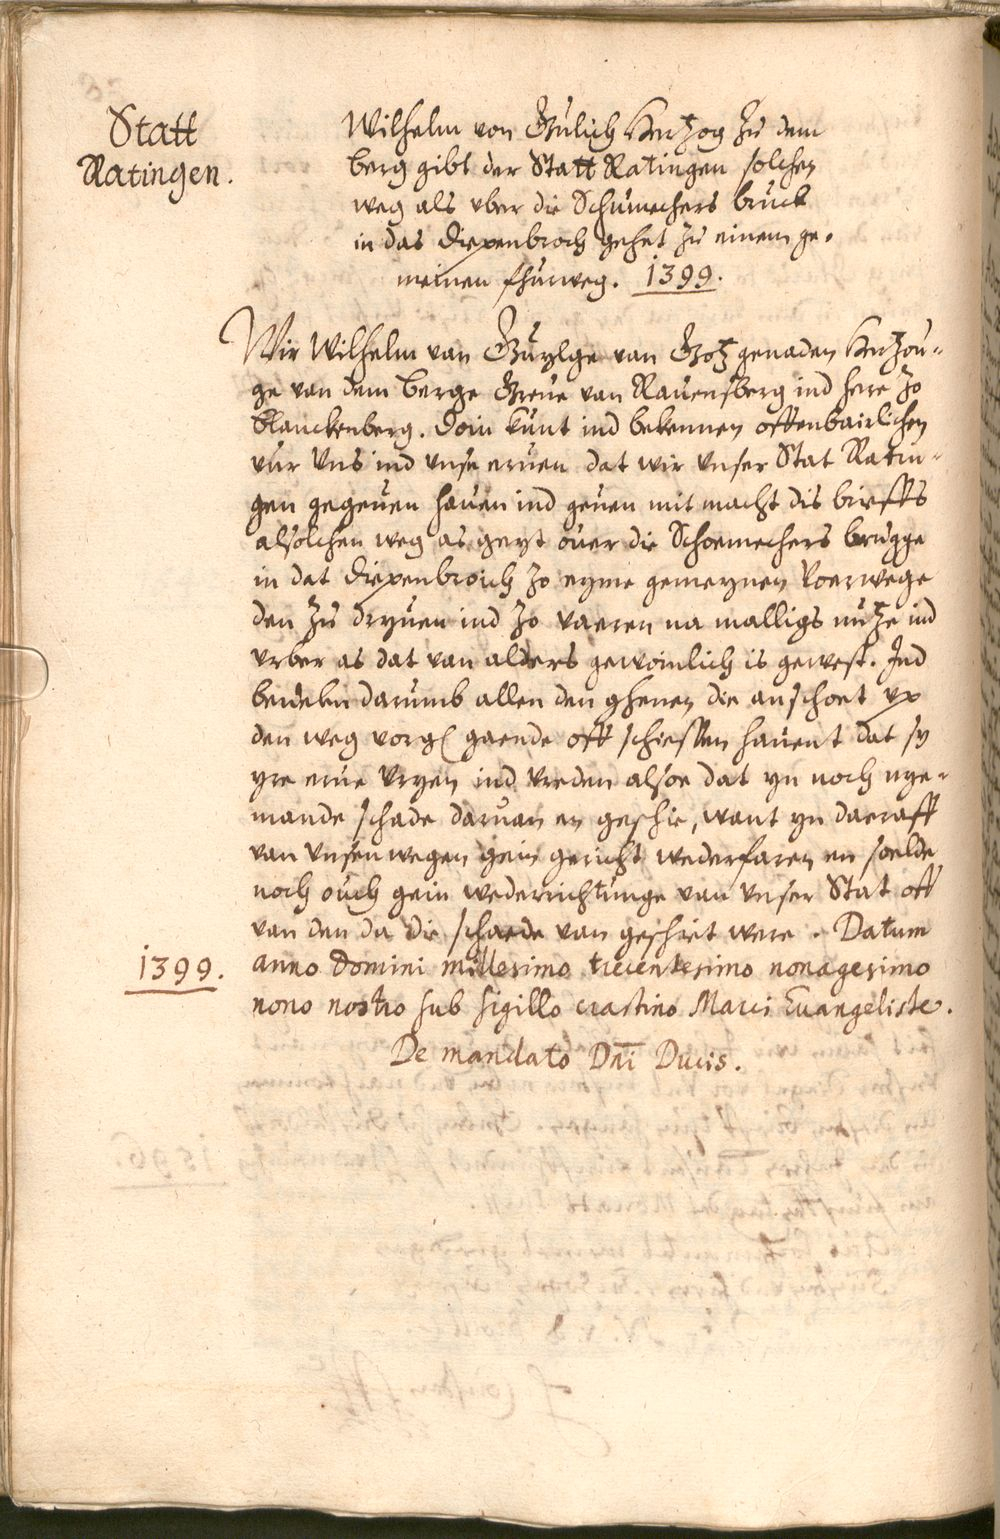 Statt
Ratingen.
Wilhelm von Gulich Hertzog zu dem
berg gibt der Statt Ratingen solchen
weg als vber die Schumechers bruck
in das Diepenbroch gehet zu einem ge-
meinen fhurweg. 1399.
Wir Wilhelm van Guylge van Gotz genaden Hertzou-
ge van dem Berge Greue van Rauensberg ind here zo
Blanckenberg. Doin kunt ind bekennen offenbairlichen
vur vns ind vnse eruen dat wir vnser Stat Ratin-
gen gegeuen hauen ind geuen mit macht dis brieffs
alsolchen weg as geyt ouer die Schoemechers brugge
in dat Diepenbroich zo eyme gemeynen voerwege
den zu dryuen ind zo vaeren na malligs nutze ind
vrber as dat van alders gewoinlich is gewest. Ind
beuelen darumb allen den ghenen die anschoet vp
den weg vorg gaende off schiessen hauent dat sy
yre erue vryen ind vreden alsoe dat yn noch nye-
mande schade daruan en geschie, want yn daeraff
van vnsen wegen gein gericht wederfaren en soelde
noch ouch gein wederrichtunge van vnser Stat off
van den da die schaede van geschiet were. Datum
1399.
anno Domini millesimo trecentesimo nonagesimo
nono nostro sub sigillo crastino Marci Euangeliste.
De mandato Dni Ducis.